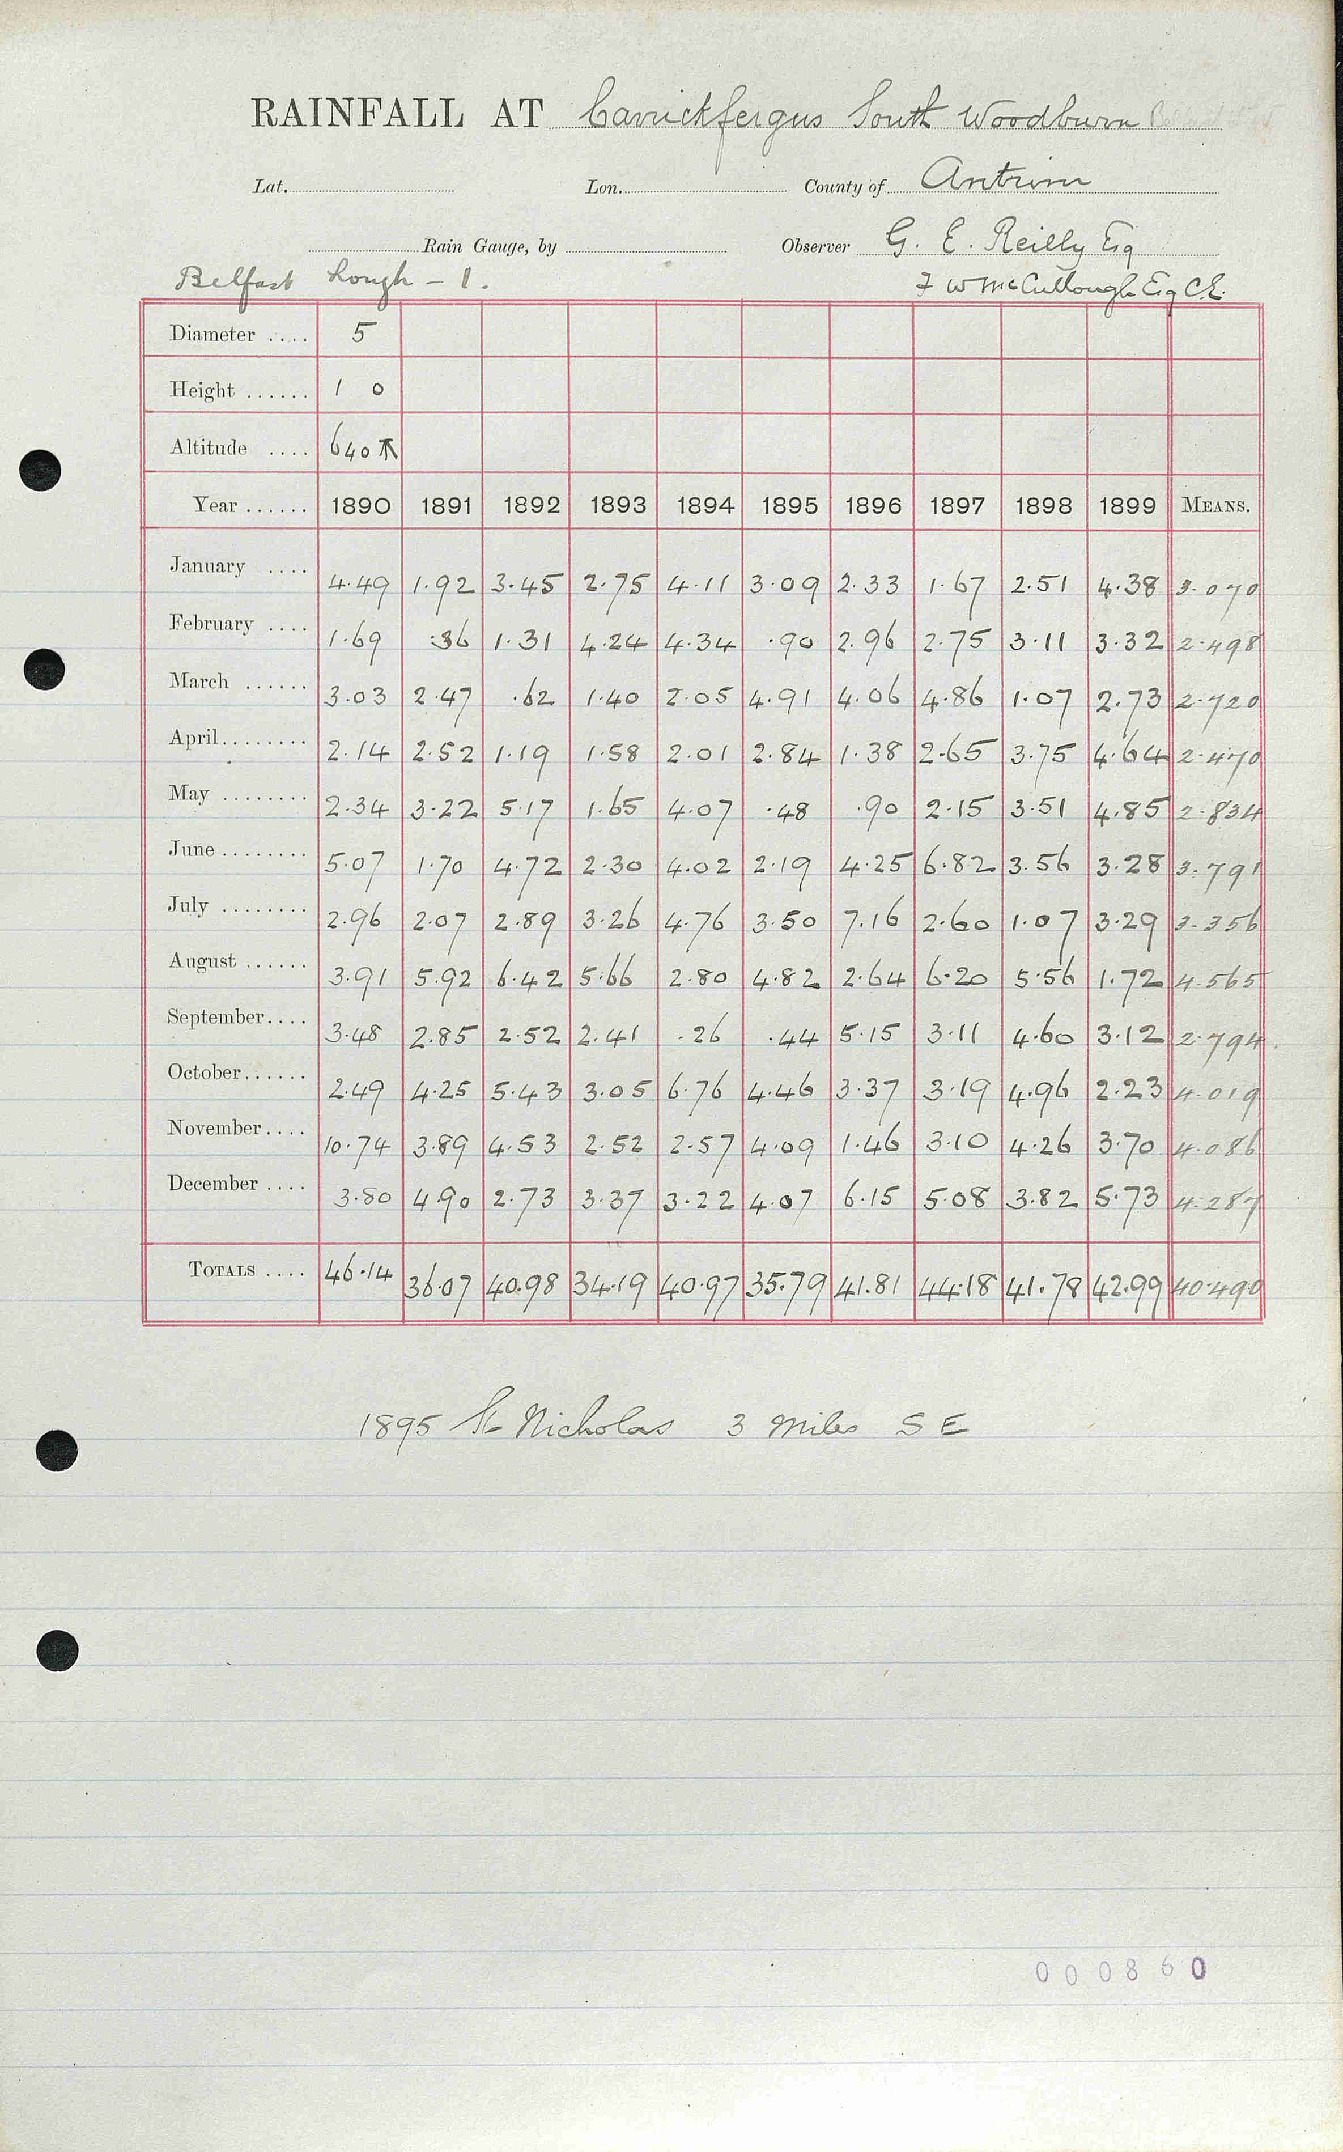 RAINFALL AT Carrickfergus South Woodburn
Lat. Lon. County of Antrim
Rain Gauge, by Observer G. E. Reilly Esq
Belfast Lough - 1. F W McCullough Esq C.E.
Diameter .... 5
Height ...... 1 0
Altitude .... 640
Year ...... 1890 1891 1892 1893 1894 1895 1896 1897 1898 1899 MEANS.
January .... 4.49 1.92 3.45 2.75 4.11 3.09 2.33 1.67 2.51 4.38 3.070
February .... 1.69 .36 1.31 4.24 4.34 .90 2.96 2.75 3.11 3.32 2.498
March ...... 3.03 2.47 .62 1.40 2.05 4.91 4.06 4.86 1.07 2.73 2.720
April........ 2.14 2.52 1.19 1.58 2.01 2.84 1.38 2.65 3.75 4.64 2.470
May ........ 2.34 3.22 5.17 1.65 4.07 .48 .90 2.15 3.51 4.85 2.834
June ........ 5.07 1.70 4.72 2.30 4.02 2.19 4.25 6.82 3.56 3.28 3.791
July ........ 2.96 2.07 2.89 3.26 4.76 3.50 7.16 2.60 1.07 3.29 3.356
August ...... 3.91 5.92 6.42 5.66 2.80 4.82 2.64 6.20 5.56 1.72 4.565
September.... 3.48 2.85 2.52 2.41 .26 .44 5.15 3.11 4.60 3.12 2.794
October...... 2.49 4.25 5.43 3.05 6.76 4.46 3.37 3.19 4.96 2.23 4.019
November.... 10.74 3.89 4.53 2.52 2.57 4.09 1.46 3.10 4.26 3.70 4.086
December .... 3.80 4.90 2.73 3.37 3.22 4.07 6.15 5.08 3.82 5.73 4.287
TOTALS .... 46.14 36.07 40.98 34.19 40.97 35.79 41.81 44.18 41.78 42.99 40.490
1895 St Nicholas 3 miles SE
000860